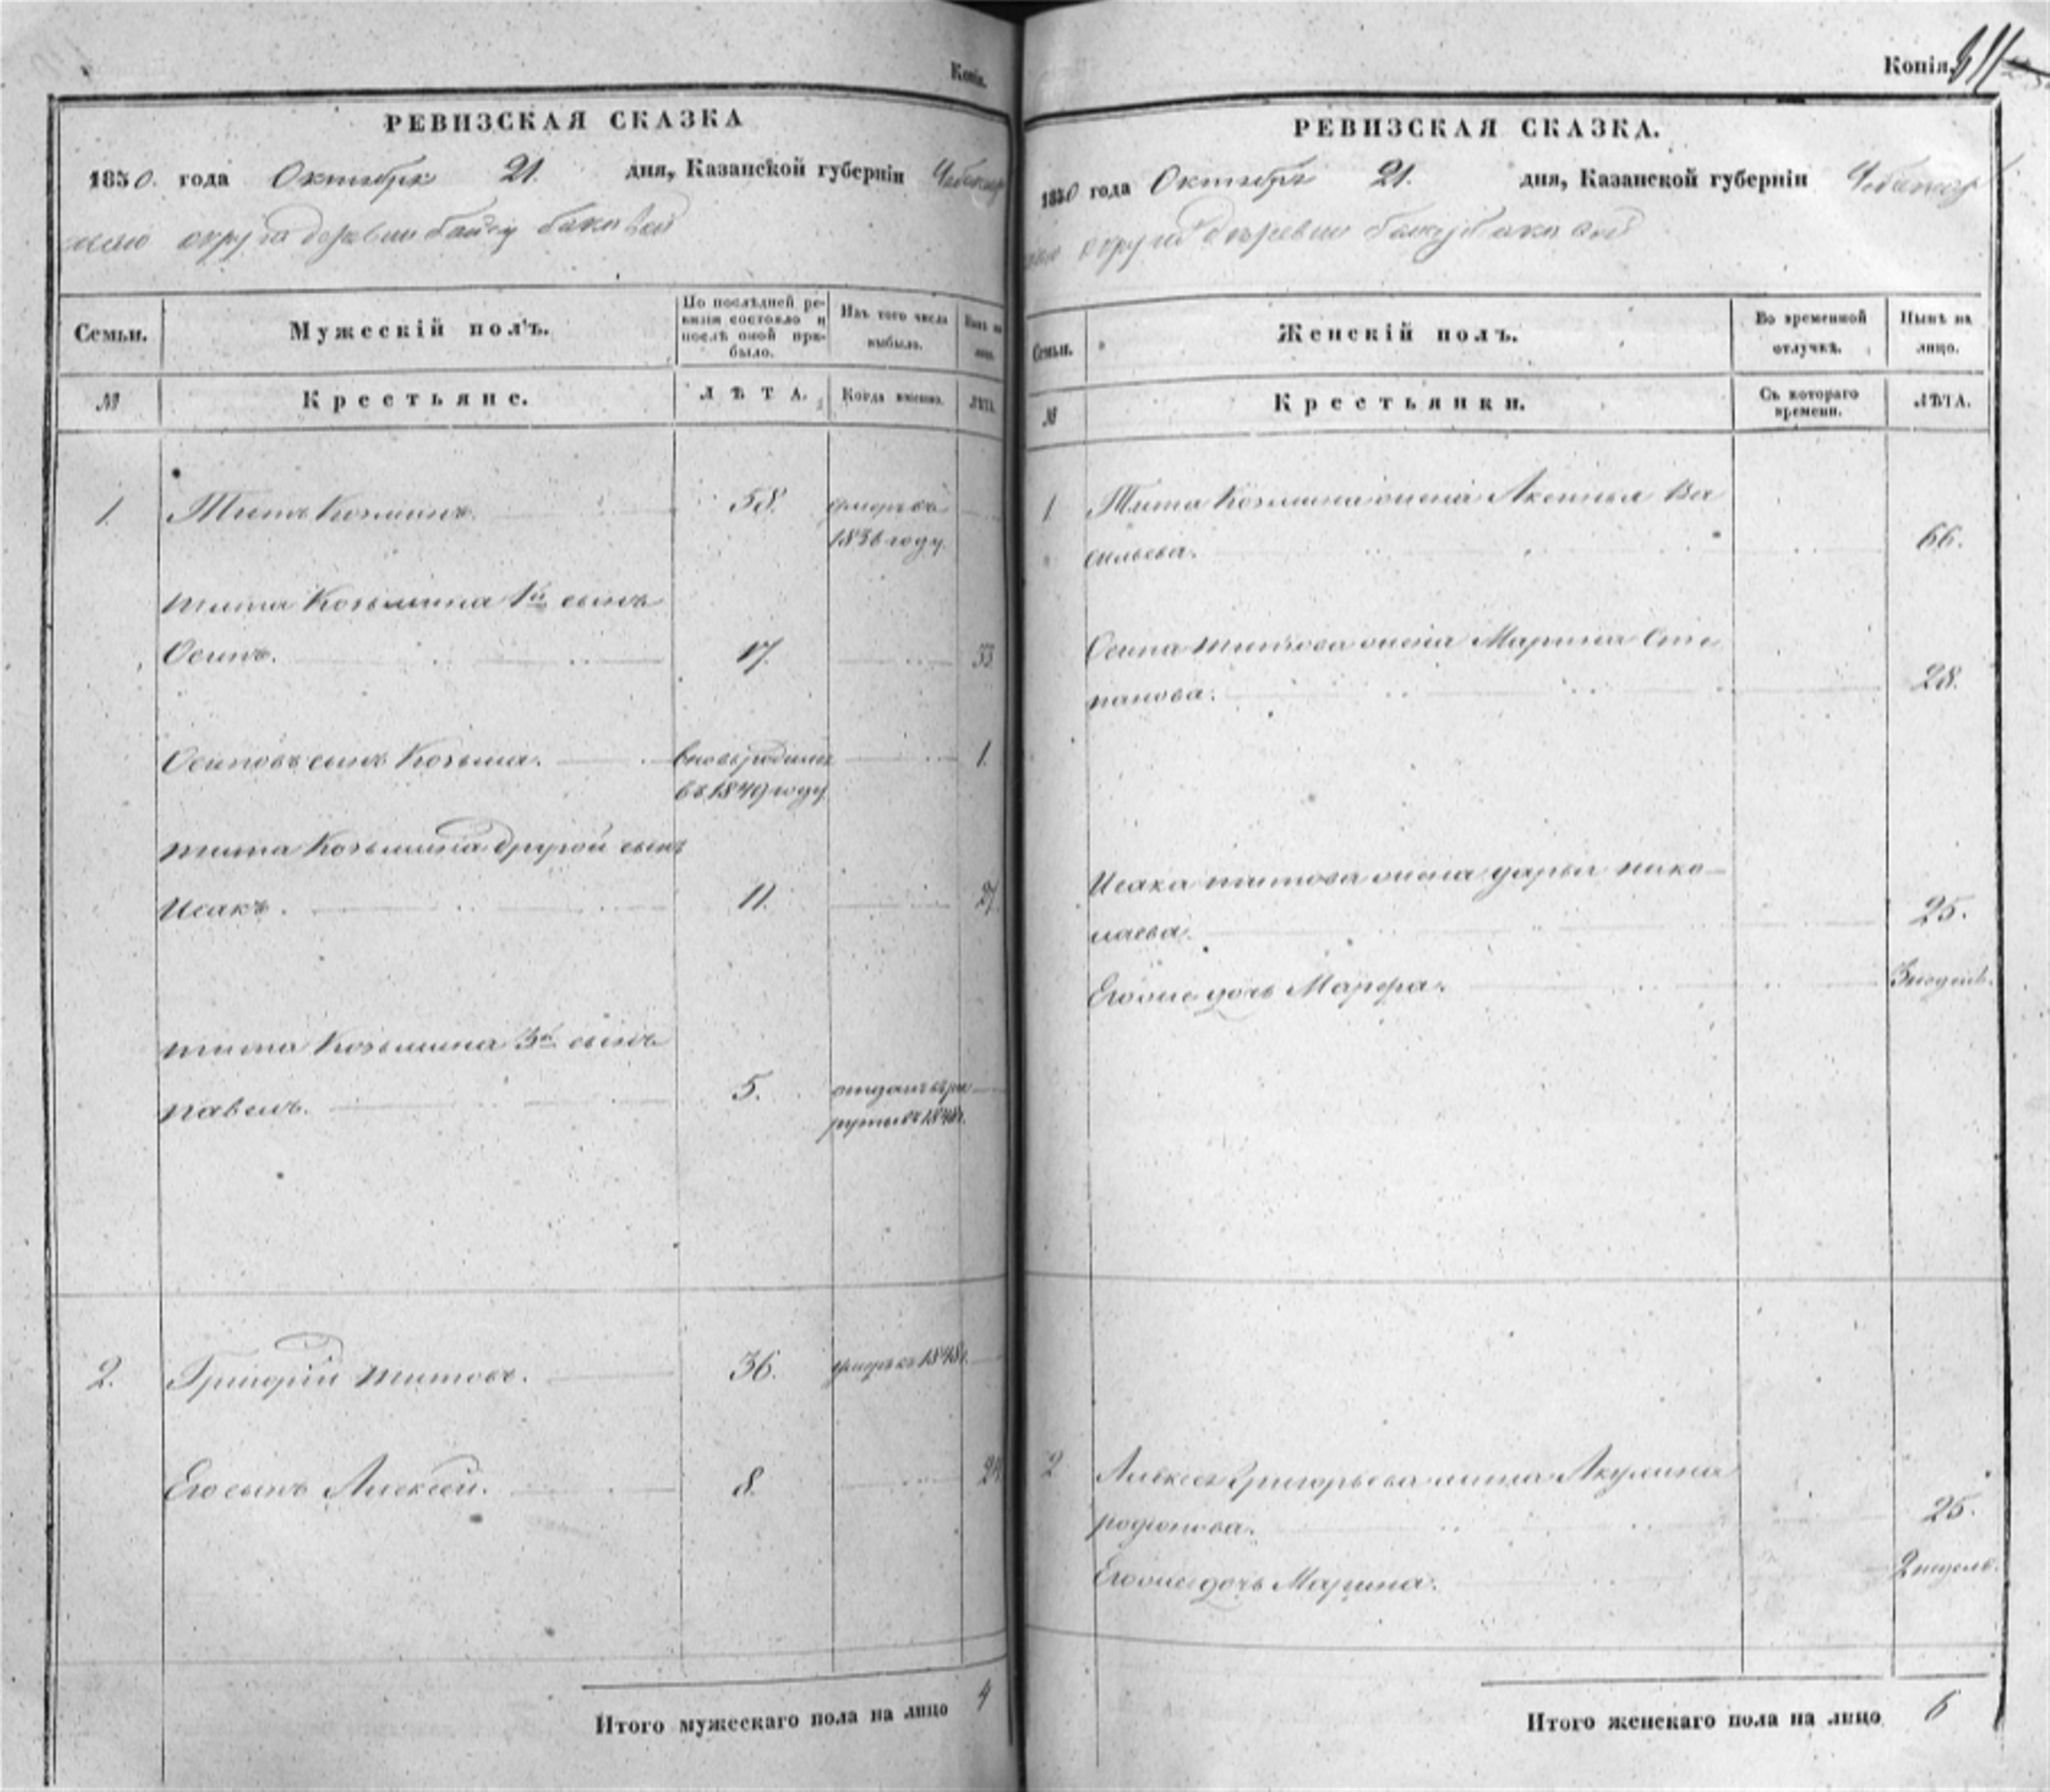 Копія.
РЕВИЗСКАЯ СКАЗКА
1850. года Октября 21. дня, Казанской губерніи Чебоксар
скаго округа деревни
Семьи.
Мужескій полъ.
По послѣдней ре-
визіи состояло и
послѣ оной при-
было.
Изъ того числа
выбыло.
Нынѣ на
лицо.
№
Крестьяне.
ЛѢТА.
Когда именно.
ЛѢТА.
1. Титъ Козьминъ. 58. умеръ въ
1836 году.
Тита Козьмина 1й сынъ
Осипъ. 17. 33
Осиповъ сынъ Козьма. вновь родился 1.
въ 1849 году
Тита Козьмина другой сынъ
Исакъ. 11. 27.
Тита Козьмина 3й сынъ
Павелъ. 5. отданъ въ рек
руты въ
2. Григорій Титовъ. 36. умеръ въ 1848 г.
Его сынъ Алексей. 8. 24
Итого мужескаго пола на лицо 4
Копія.
РЕВИЗСКАЯ СКАЗКА.
1850 года Октября 21. дня, Казанской губерніи Чебоксар
скаго округа деревни
Семьи.
Женскій полъ.
Во временной
отлучкѣ.
Нынѣ на
лицо.
№
Крестьянки.
Съ котораго
времени.
ЛѢТА.
1 Тита Козьмина жена Аксинья Ва
сильева. 66.
Осипа Титова жена Марина Сте
панова. 28.
Исака Титова жена Дарья Нико-
лаева. 25.
Его же дочь Марфа. 3 недель.
2 Алексея Григорьева жена Акулина
Родіонова. 25.
Его же дочь Марина. 2 недель.
Итого женскаго пола на лицо 6